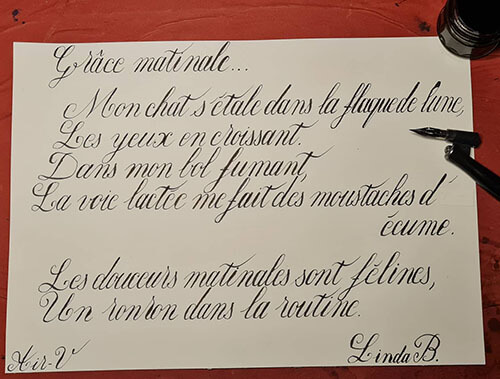 Grâce matinale...
Mon chat s'étale dans la flaque de lune,
Les yeux en croissant.
Dans mon bol fumant,
La voie lactée me fait des moustaches d'
écume.
Les douceurs matinales sont félines,
Un ronron dans la routine.
Air-V
Linda B.